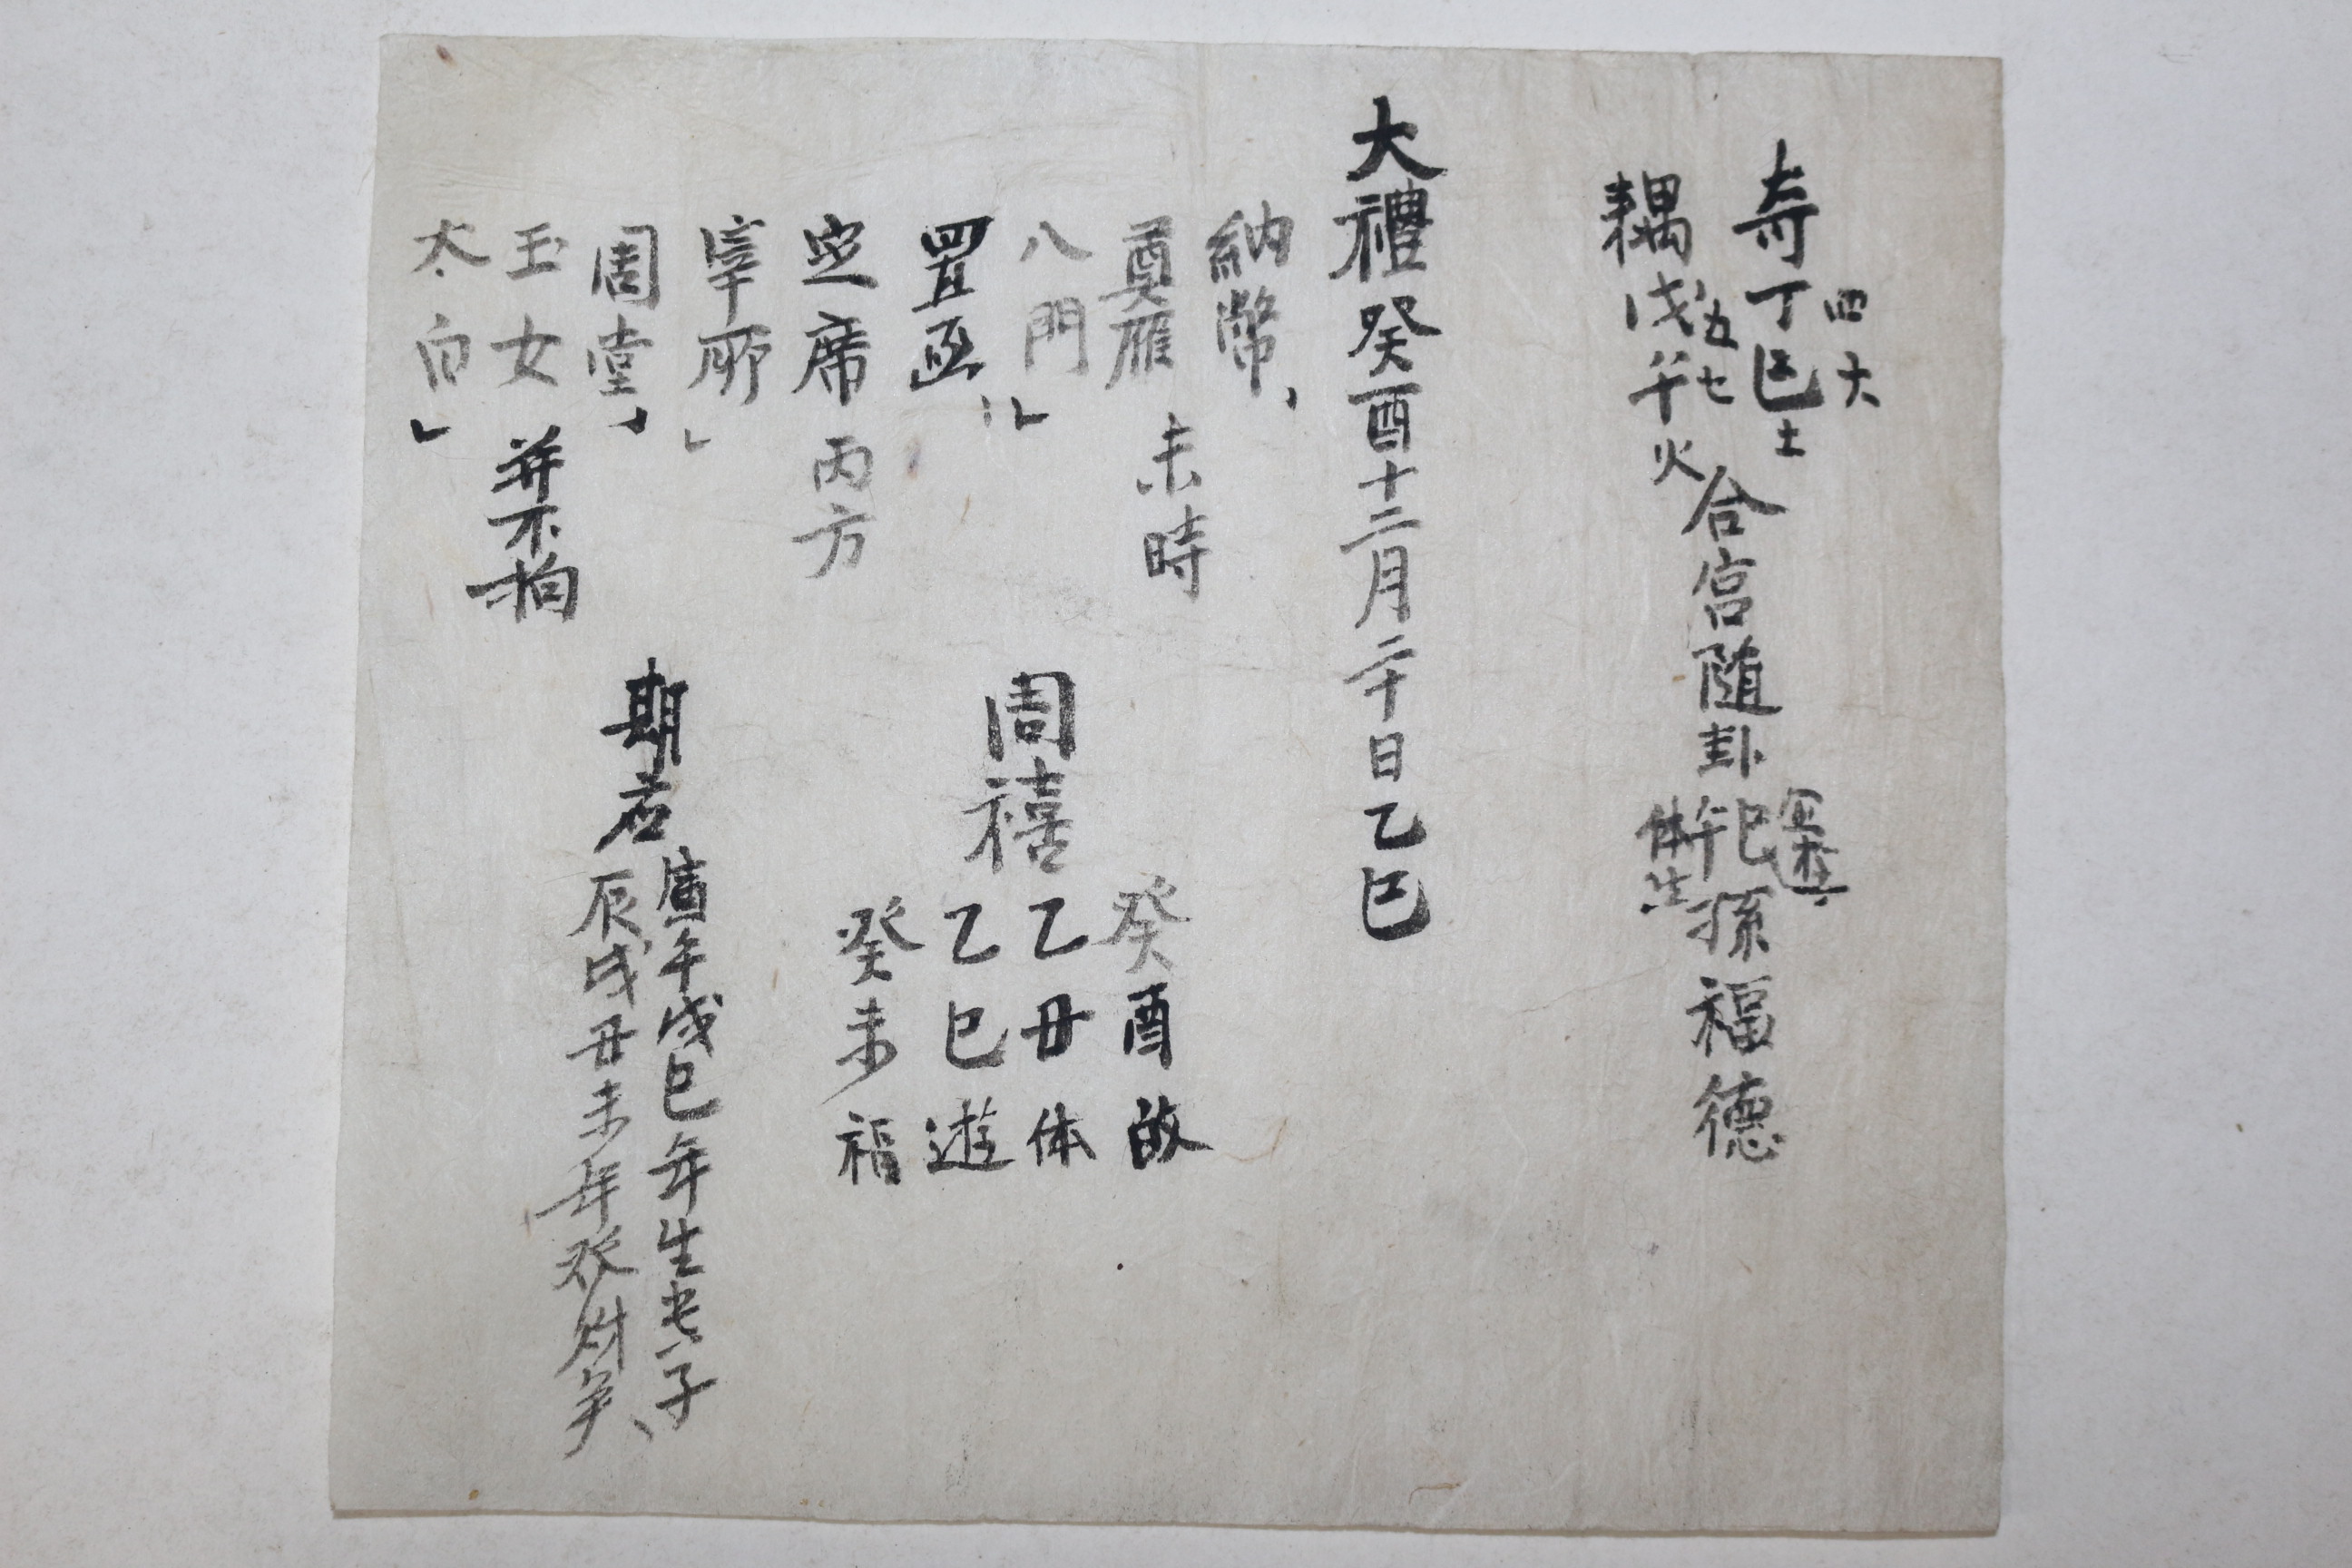 四大
奇丁巳土
五七
耦戊午火
合宮隨卦
巳午
体生
孫福德
大禮癸酉十二月二十日乙巳
納幣
奠雁
未時
八門
置函
定席 丙方
宰所
周堂
玉女
太白
并不拘
周禧
癸酉故
乙丑体
乙巳遊
癸未福
期
寅午戌巳年生
子
辰戌丑未年